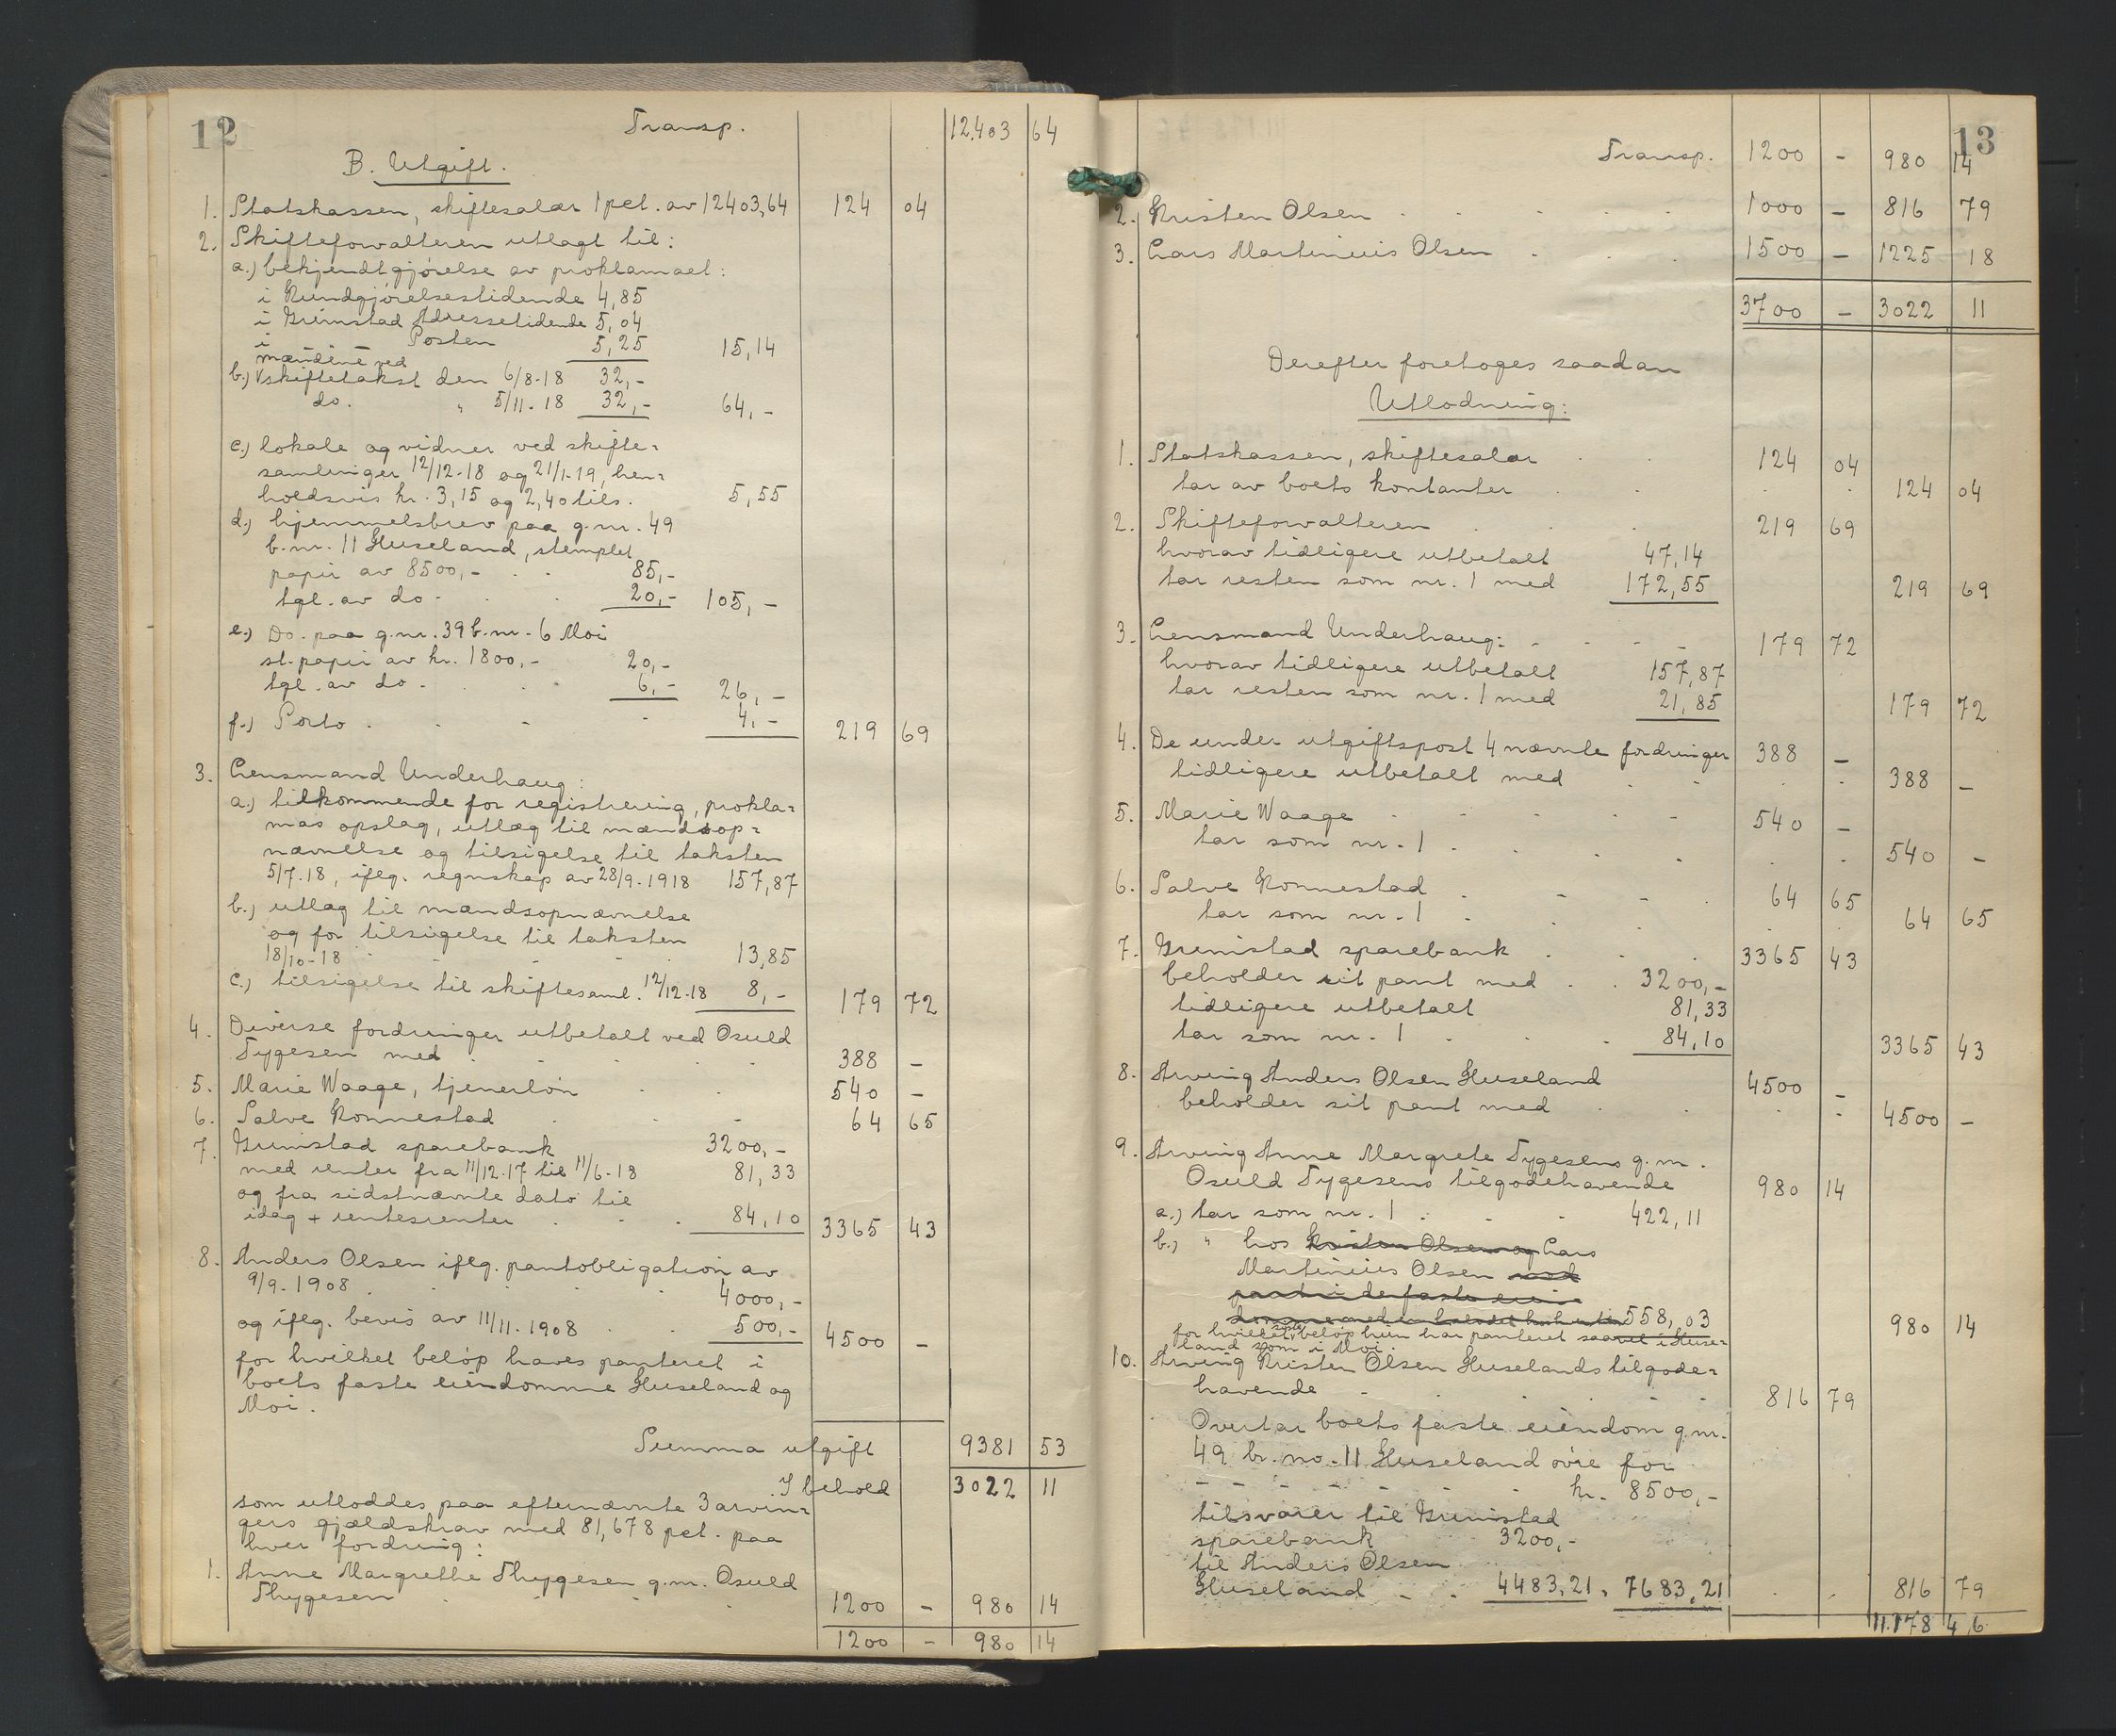 12
Transp. 12.403 64
B. Utgift.
1. Statskassen, skiftesalær 1 pct. av 12403,64 124 04
2. Skifteforvalteren utlagt til:
a.) bekjendtgjørelse av proklamaet:
i Kundgjørelsestidende 4,85
i Grimstad Adressetidende 5,04
i — Posten 5,25 15,14
mændene ved
b.) skiftetakst den 6/8-18 32,-
do. " 5/11-18 32,- 64,-
c.) lokale og vidner ved skifte-
samlinger 12/12-18 og 21/1-19, hen-
holdsvis kr. 3,15 og 2,40 tils. 5,55
d.) hjemmelsbrev paa g.nr. 49
b.nr. 11 Huseland, stemplet
papir av 8500,- 85,-
tgl. av do. 20,- 105,-
e.) Do. paa g.nr. 39 b.nr. 6 Moi
st.papir av kr. 1800,- 20,-
tgl. av do. 6,- 26,-
f.) Porto 4,- 219 69
3. Lensmand Underhaug:
a.) tilkommende for registrering, prokla-
mas opslag, utlæg til mændsop-
nævnelse og tilsigelse til taksten
5/7-18, ifølg. regnskap av 28/9-1918 157,87
b.) utlæg til mændsopnævnelse
og for tilsigelse til taksten
18/10-18 13,85
c.) tilsigelse til skiftesaml. 12/12-18 8,- 179 72
4. Diverse fordringer utbetalt ved Osuld
Tygesen med 388 -
5. Marie Waage, tjenerløn 540 -
6. Salve Ronnestad 64 65
7. Grimstad sparebank 3200,-
med renter fra 11/12-17 til 11/6-18 81,33
og fra sidstnævnte dato til
idag + rentesrenter 84,10 3365 43
8. Anders Olsen iflg. pantobligation av
9/9-1908 4000,-
og iflg. bevis av 11/11-1908 500,- 4500 -
for hvilket beløp haves panteret i
boets faste eiendomme Huseland og
Moi.
Summa utgift 9381 53
I behold 3022 11
som utloddes paa efternævnte 3 arvin-
gers gjældskrav med 81,678 pct. paa
hver fordring:
1. Anne Margrethe Thygesen g.m. Osuld
Thygesen 1200 - 980 14
1200 - 980 14
13
Transp. 1200 - 980 14
2. Kristen Olsen 1000 - 816 79
3. Lars Martinius Olsen 1500 - 1225 18
3700 - 3022 11
Derefter foretoges saadan
Utlodning:
1. Statskassen, skiftesalær 124 04
tar av boets kontanter 124 04
2. Skifteforvalteren 219 69
hvorav tidligere utbetalt 47,14
tar resten som nr. 1 med 172,55 219 69
3. Lensmand Underhaug: 179 72
hvorav tidligere utbetalt 157,87
tar resten som nr. 1 med 21,85 179 72
4. De under utgiftspost 4 nævnte fordringer 388 -
tidligere utbetalt med 388 -
5. Marie Waage 540 -
tar som nr. 1 540 -
6. Salve Ronnestad 64 65
tar som nr. 1 64 65
7. Grimstad sparebank 3365 43
beholder sit pant med 3200,-
tidligere utbetalt 81,33
tar som nr. 1 84,10 3365 43
8. Arving Anders Olsen Huseland 4500 -
beholder sit pant med 4500 -
9. Arving Anne Margrete Tygesens g.m.
Osuld Tygesens tilgodehavende 980 14
a.) tar som nr. 1 422,11
b.) " hos Kristen Olsen og Lars
Martinius Olsen mod
pant i de faste eien-
558,03 980 14
for hvilket sidste beløp hun har panteret saavel i Huse-
land som i Moi.
10. Arving Kristen Olsen Huselands tilgode-
havende 816 79
Overtar boets faste eiendom g.nr.
49 br.no. 11 Huseland øvre for
kr. 8500,-
tilsvarer til Grimstad
sparebank 3200,-
til Anders Olsen
Huseland 4483,21 " 7683,21 816 79
11.178 46